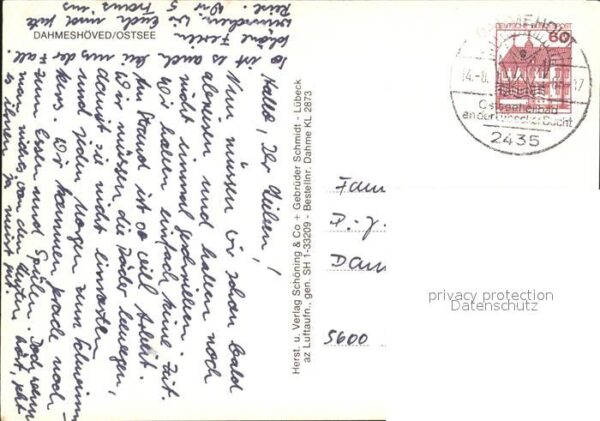 DAHMESHÖVED/OSTSEE
Hallo, Ihr Lieben!
Nun müssen wir schon bald
abreisen und haben noch
nicht einmal geschrieben.
Wir haben einfach keine Zeit.
Am Strand ist so viel Arbeit.
Wir müssen die Räder bewegen,
damit sie nicht einrosten
und jeden Morgen zum Schwimm-
kurs. Wir kommen grade noch
zum Essen und Spülen. Doch wenn
man nichts von den Leuten hört, geht
es ihnen ja meist gut.
So ist es auch bei uns der Fall.
Schöne Ferien
wünschen wir Euch und gute
Reise.
Herst. u. Verlag Schöning & Co + Gebrüder Schmidt - Lübeck
az Luftaufn., gen. SH 1-33209 - Bestellnr. Dahme KL 2873
60
14.-8.
Ostseeheilbad
an der Lübecker Bucht
2435
Fam
5600
privacy protection
Datenschutz